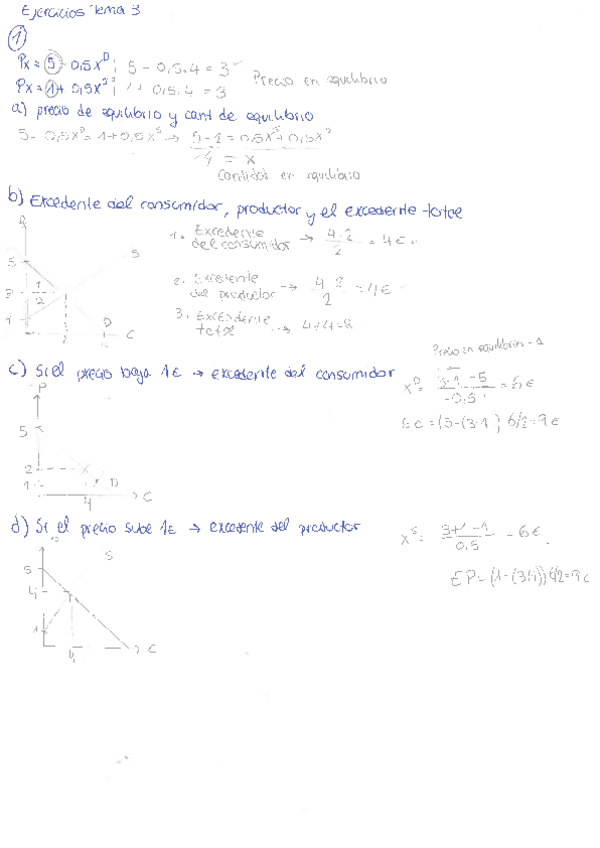 Ejercicios Tema 3
1
Px = 5 - 0,5x^D ; 5 - 0,5.4 = 3
Px = 1 + 0,5x^S ; 1 + 0,5.4 = 3
Precio en equilibrio
a) precio de equilibrio y cant de equilibrio
5 - 0,5x^D = 1 + 0,5x^S → 5 - 1 = 0,5x^S + 0,5x^D
4 = x
Cantidad en equilibrio
b) Excedente del consumidor, productor y el excedente total
1. Excedente del consumidor → 4.2/2 = 4€
2. Excedente del productor → 4.2/2 = 4€
3. Excedente total → 4+4=8
5
3
1
1
2
S
D
C
c) Si el precio baja 1€ → excedente del consumidor
Precio en equilibrio - 1
x^D = 3-1-5/-0,5 = 6€
EC = (5-(3-1) 6/2 = 9€
P
5
2
1
4
D
C
d) Si el precio sube 1€ → excedente del productor
x^S = 3+1-1/0,5 = 6€
5
4
1
4
S
C